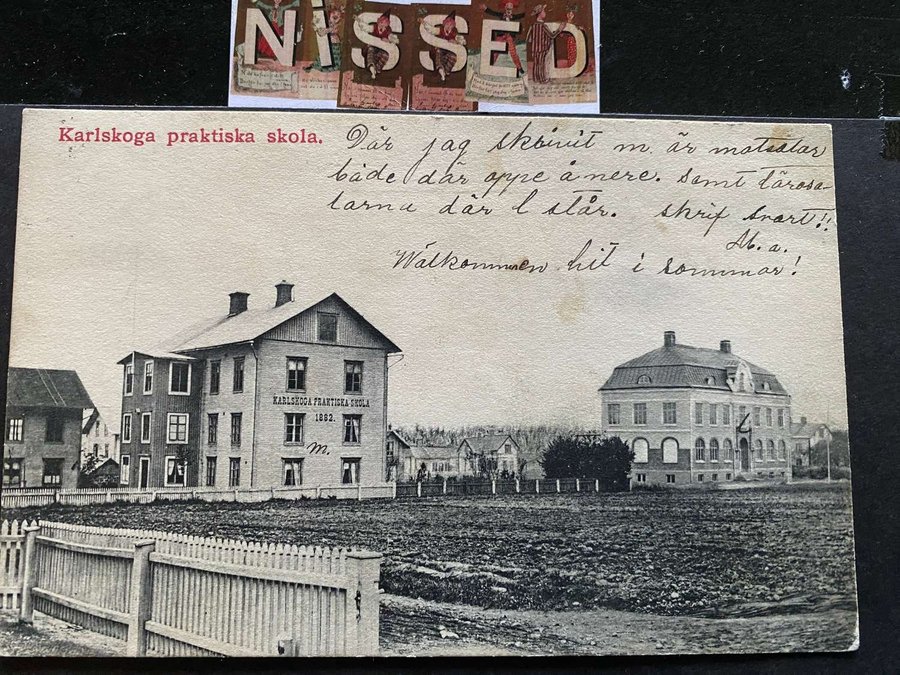 NISSED
Karlskoga praktiska skola.
Där jag skrivit m. är matsalar
både där oppe å nere. Samt lärosa-
larna där l står. skrif snart!!
M. a.
Wälkommen hit i sommar!
KARLSKOGA PRAKTISKA SKOLA
1882.
m.